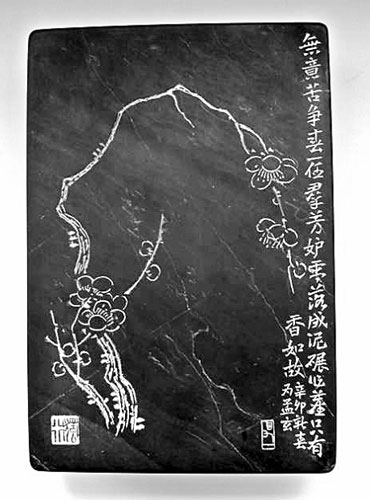 無意苦争春一任羣芳妒零落成泥碾作塵只有
香如故
辛卯春
为孟玄